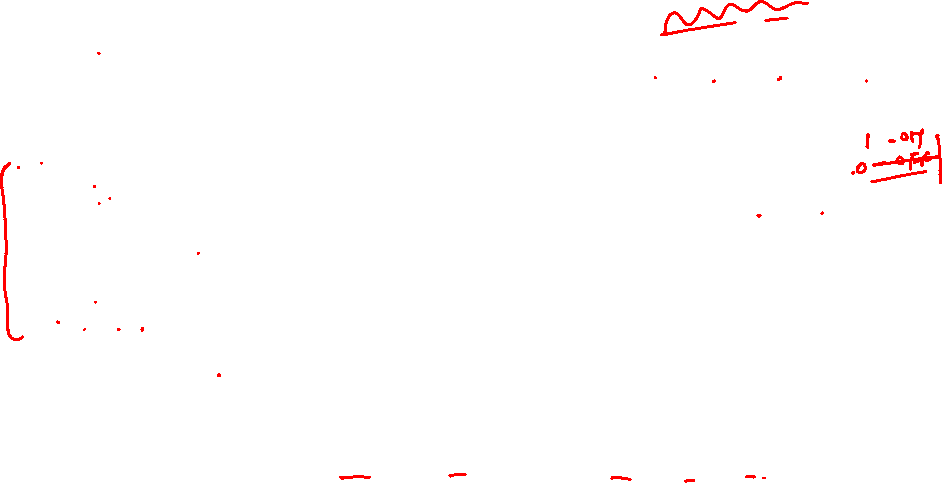 1 - ON
0 - OFF